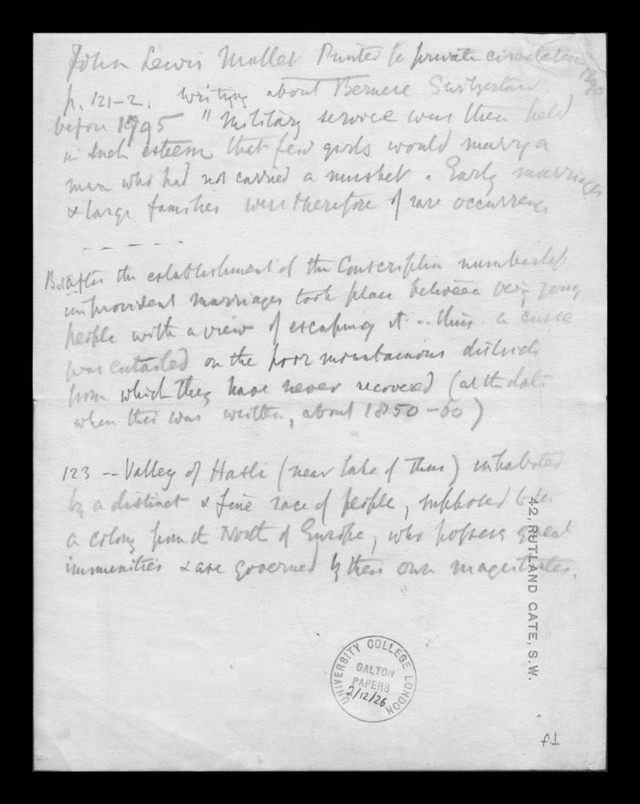 John Lewis Mallet Printed for private circulation 1890
p. 121-2. Writing about Bernese Switzerland
before 1795 "Military service was then held
in such esteem that few girls would marry a
man who had not carried a musket. Early marriages
& large families were therefore of rare occurrence
- - - - - -
But after the establishment of the Conscription numbers of
improvident marriages took place between very young
people with a view of escaping it - thus a curse
was entailed on the poor mountainous districts
from which they have never recovered (at the date
when this was written, about 1850-60)
123 -- Valley of Hasli (near lake of Thun) inhabited
by a distinct & fine race of people, supposed to be
a colony from the North of Europe, who possess great
immunities & are governed by their own magistrates.
42, RUTLAND GATE, S.W.
UNIVERSITY COLLEGE LONDON
GALTON
PAPERS
2/12/26